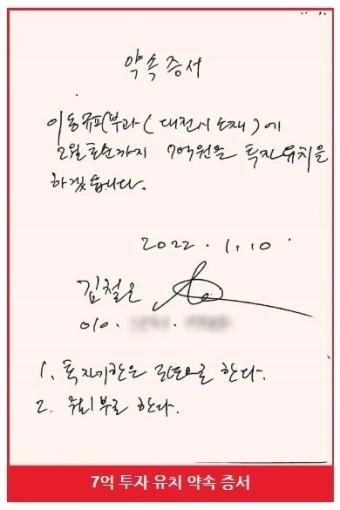 약속 증서
이동규피부과(대전시 소재)에
2월 초순까지 7억원을 투자유치를
하겠습니다.
2022. 1. 10
김철호
010.
1. 투자기한은 으로 한다.
2. 부로 한다.
7억 투자 유치 약속 증서